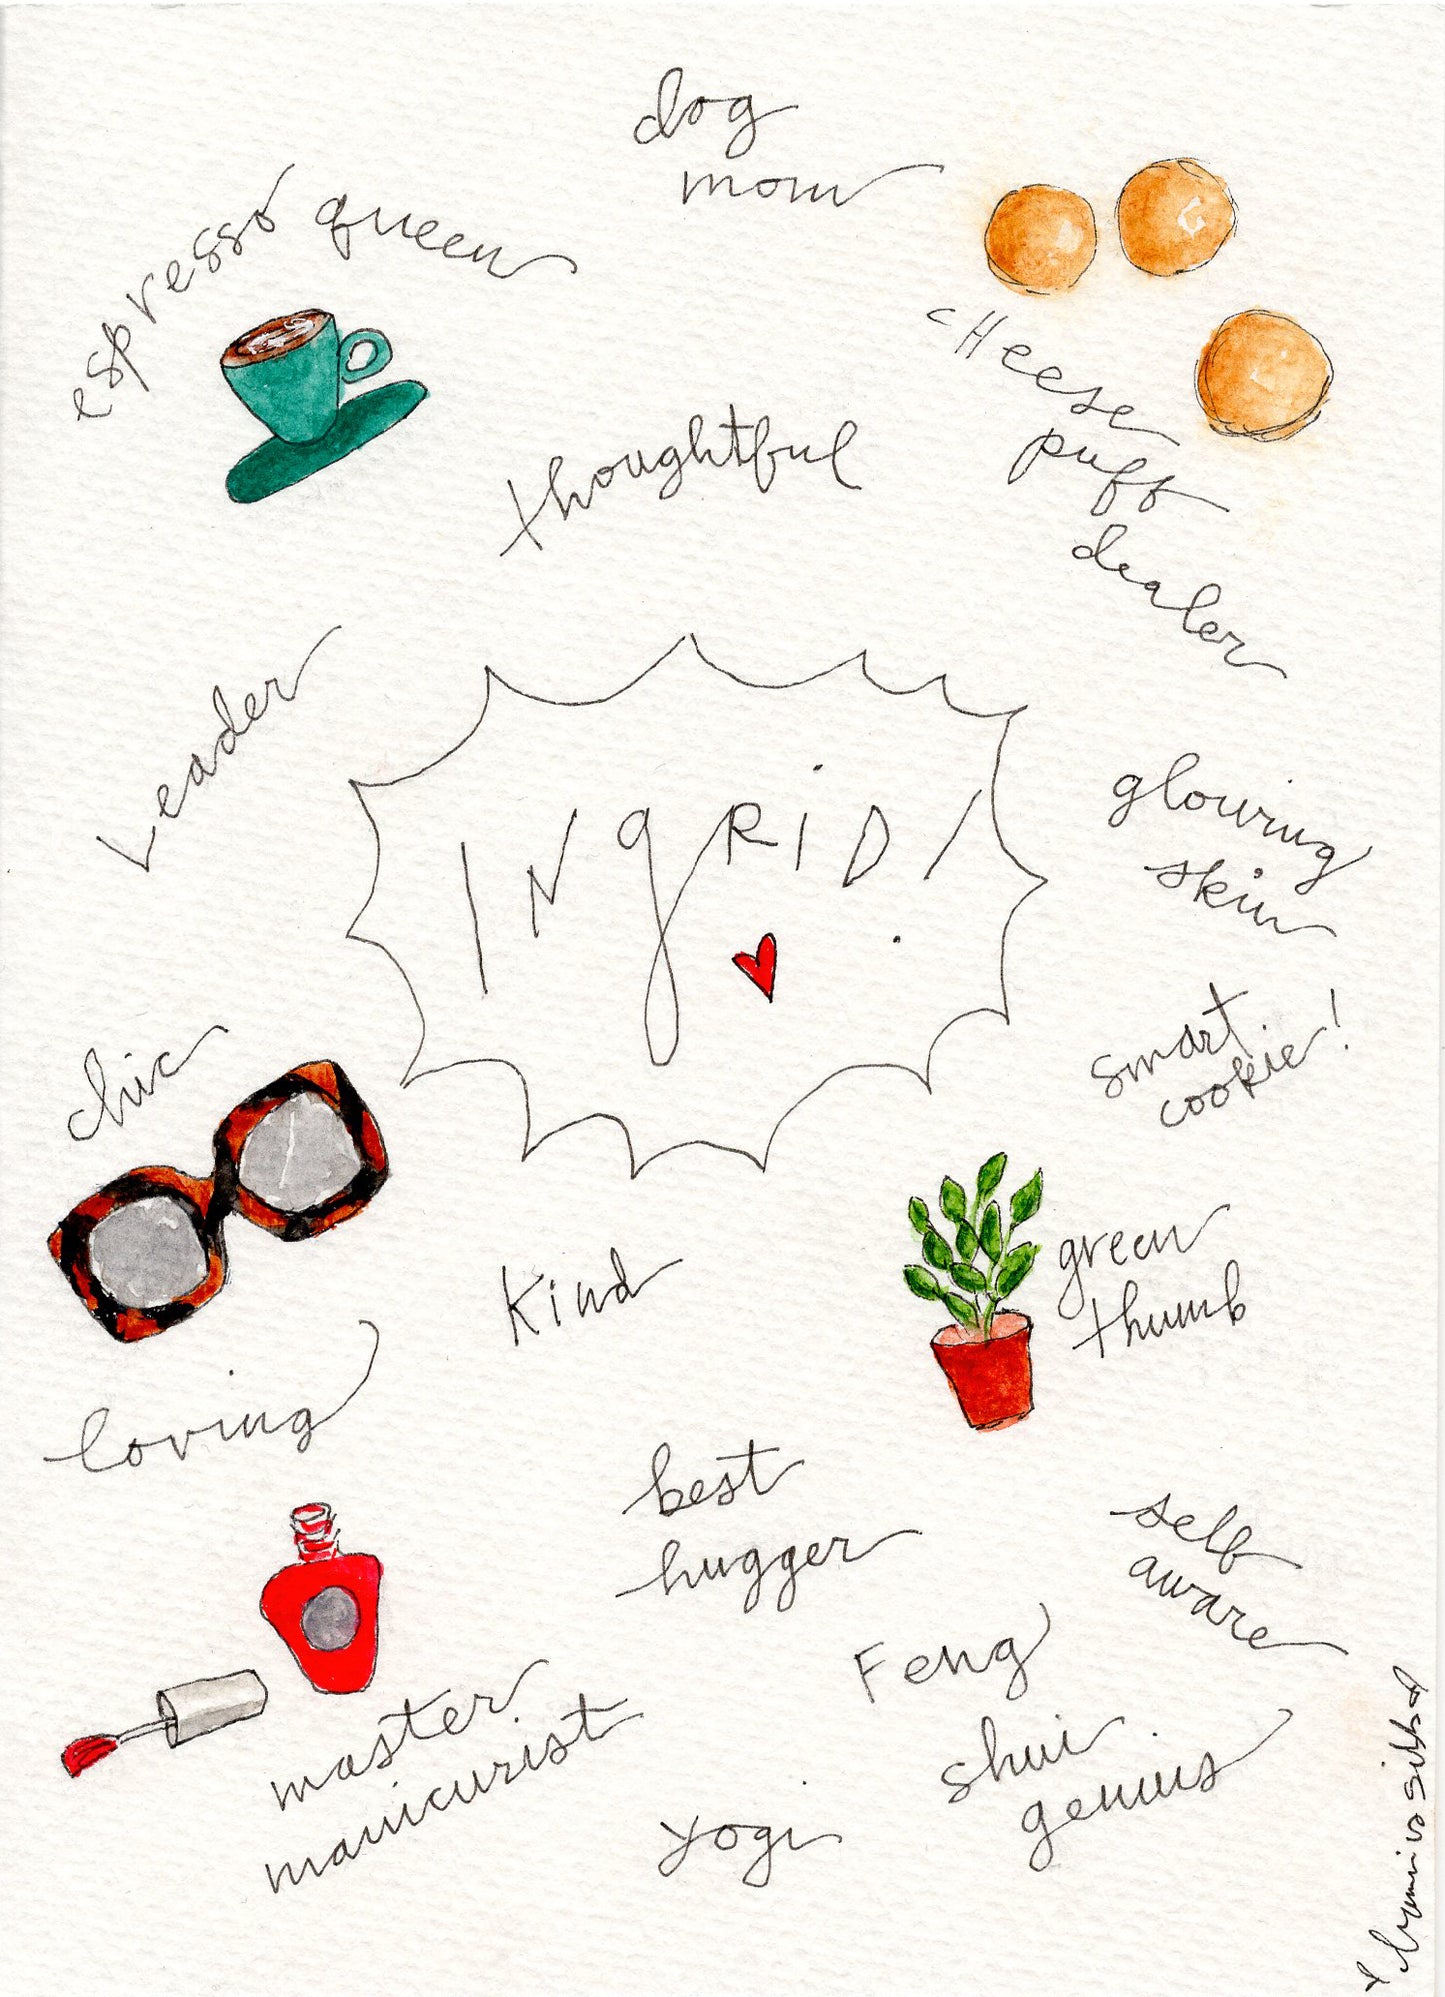 dog
mom
espresso queen
cHeese
puff
dealer
thoughtful
Leader
INgRiD!
glowing
skin
smart
cookie!
chic
green
thumb
Kind
loving
best
hugger
self
aware
Feng
shui
genius
master
manicurist
yogi